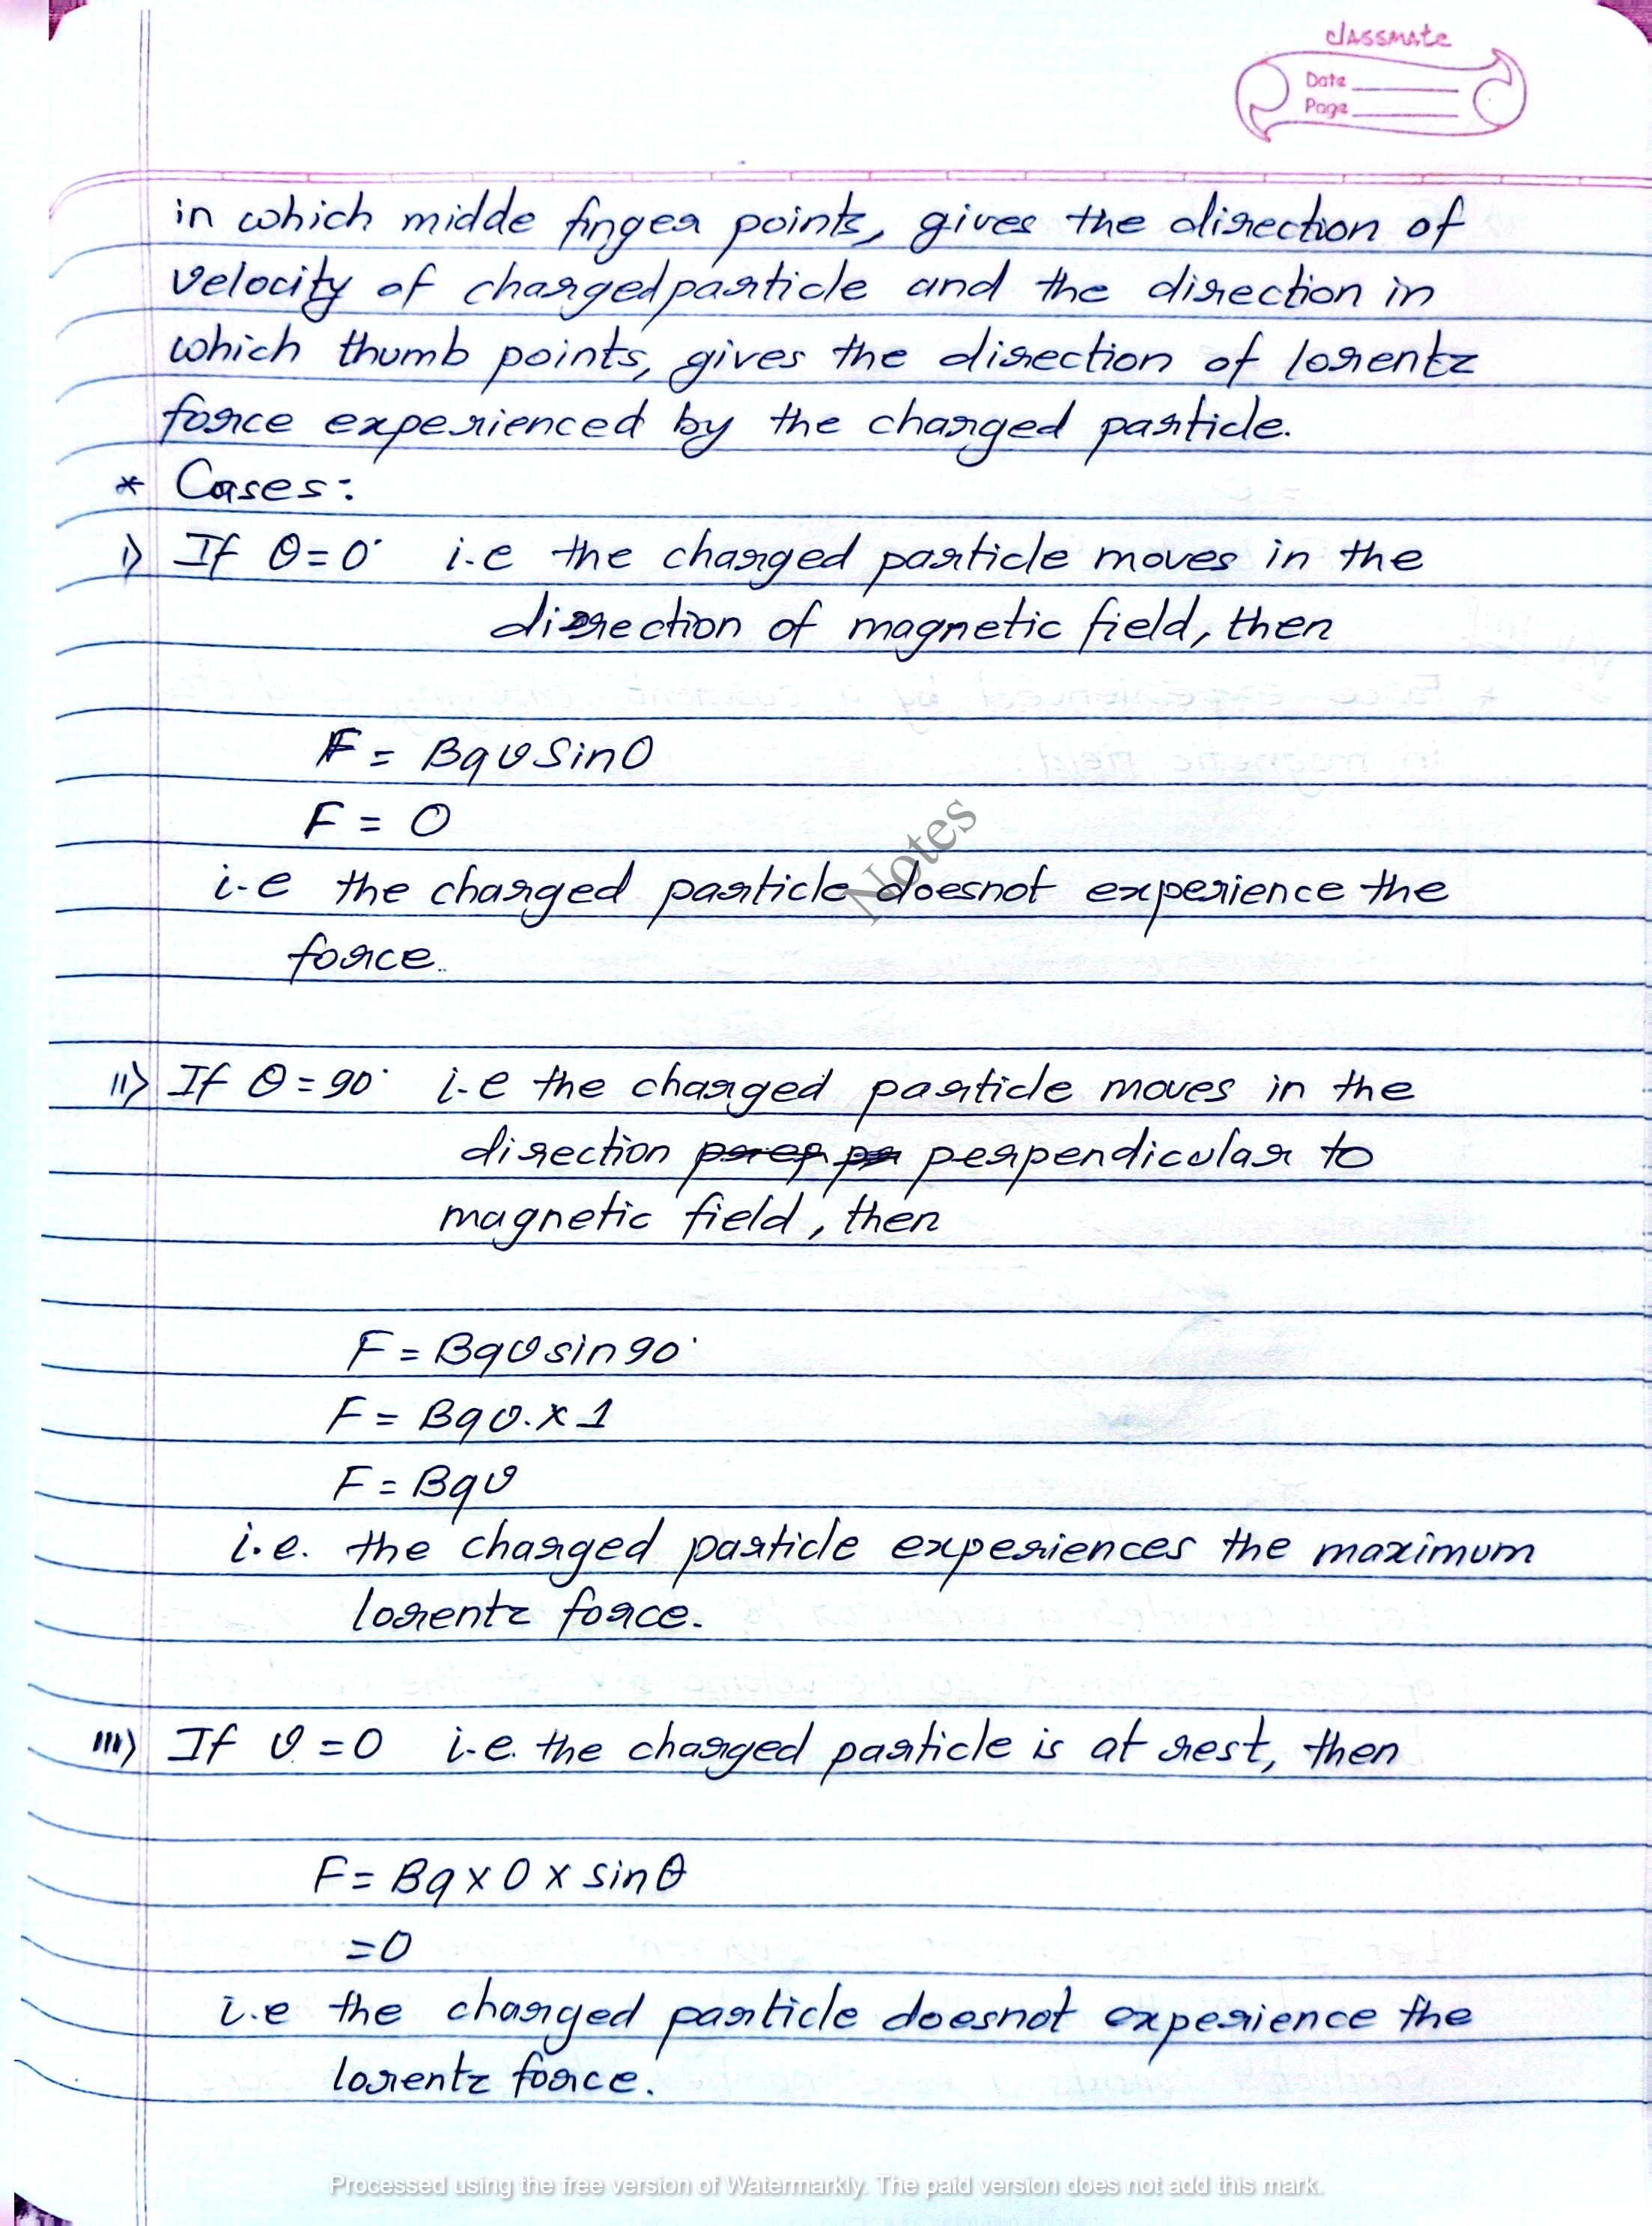 classmate
Date
Page
in which midde finger points, gives the direction of
velocity of charged particle and the direction in
which thumb points, gives the direction of lorentz
force experienced by the charged particle.
* Cases:
i) If θ = 0° i.e the charged particle moves in the
direction of magnetic field, then
F = Bqv Sin0
F = 0
Notes
i-e the charged particle doesnot experience the
force.
ii) If θ = 90° i-e the charged particle moves in the
direction perpendicular to
magnetic field, then
F = Bqv sin90°
F = Bqv. x 1
F = Bqv
i.e. the charged particle experiences the maximum
lorentz force.
iii) If v = 0 i-e. the charged particle is at rest, then
F = Bq x 0 x sinθ
= 0
i.e the charged particle doesnot experience the
lorentz force.
Processed using the free version of Watermarkly. The paid version does not add this mark.